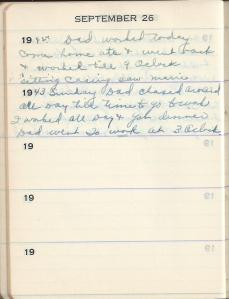 SEPTEMBER 26
1942 Dad worked today
Come home ate & went back
& worked till 9 Oclock
saw movie
1943 Sunday Dad chased around
all Day till time to go to work
I worked all Day & got dinner
Dad went to work at 3 Oclock
19
19
19